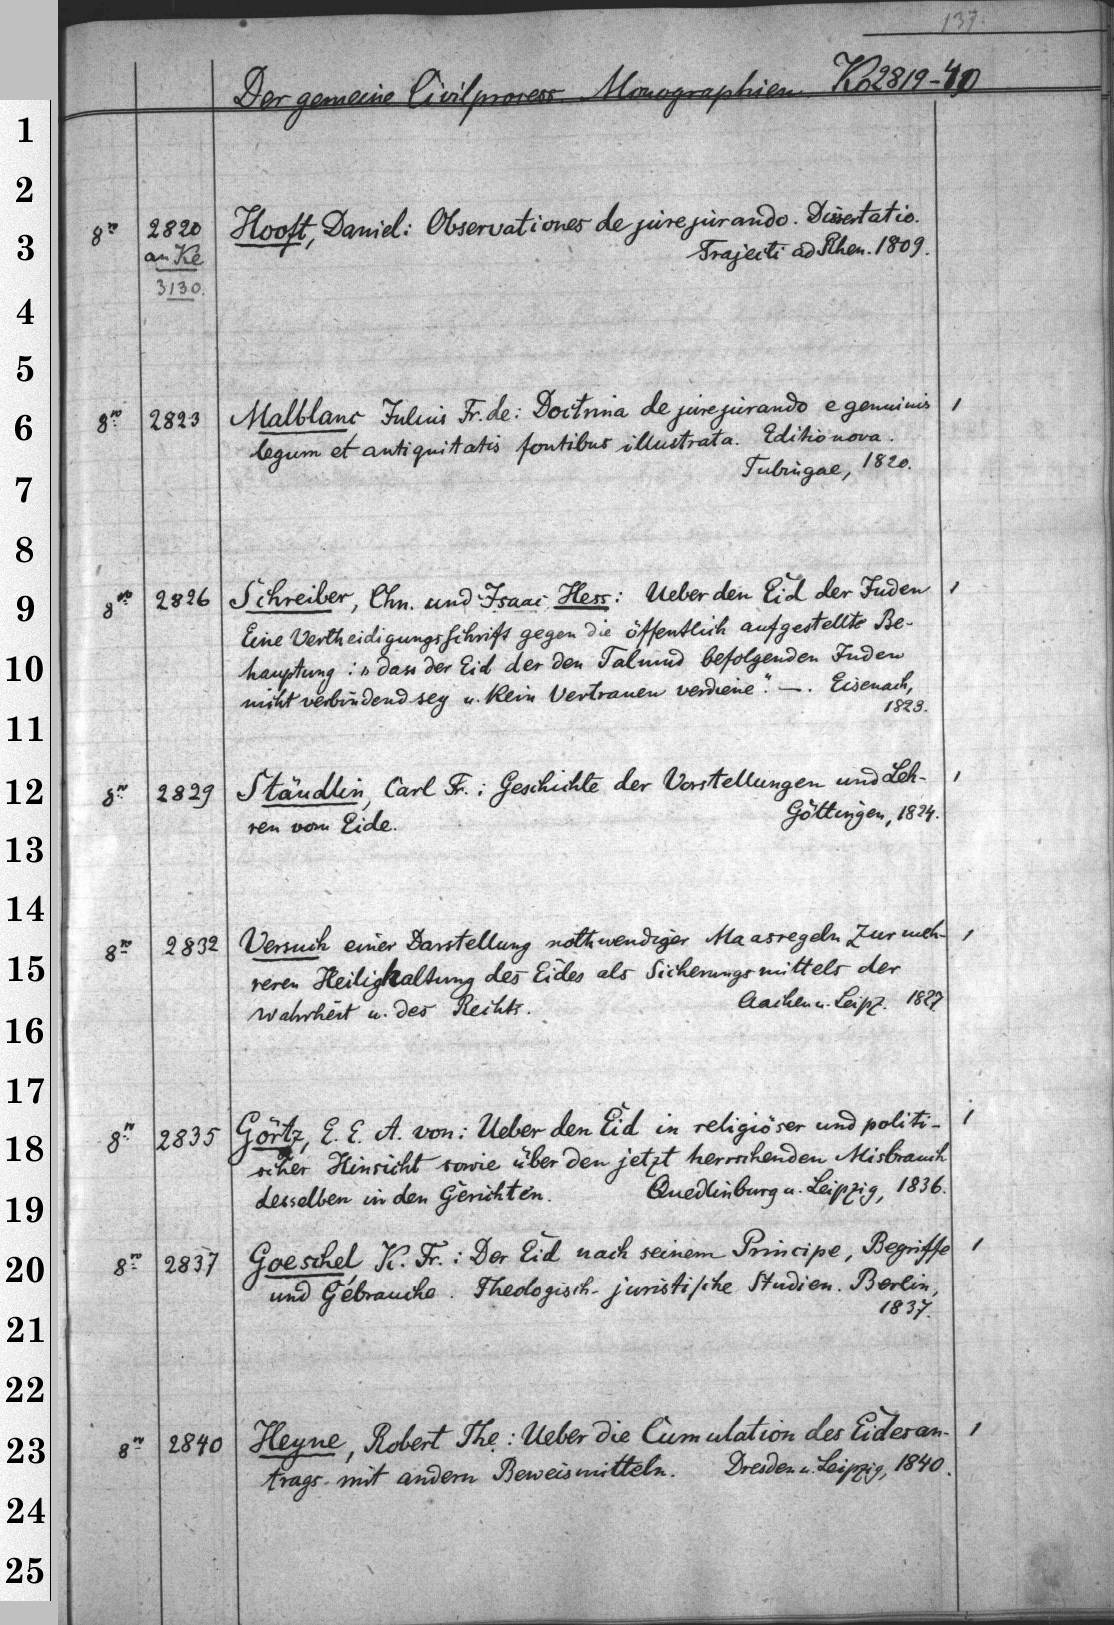 137.
Der gemeine Civilprocess. Monographien. Ko2819-40
1
2
8º 2820 Hooft, Daniel: Observationes de jurejurando. Dissertatio.
3 an Ke Trajecti ad Rhen. 1809.
3130.
4
5
8º 2823 Malblanc Julius Fr. de: Doctrina de jurejurando e genuinis 1
6
legum et antiquitatis fontibus illustrata. Editio nova.
Tubingae, 1820.
7
8
8º 2826 Schreiber, Chn. und Isaac Hess: Ueber den Eid der Juden 1
9
Eine Vertheidigungsschrift gegen die öffentlich aufgestellte Be-
10 hauptung: „dass der Eid der den Talmud befolgenden Juden
nicht verbindend sey u. kein Vertrauen verdiene". —. Eisenach,
1823.
11
12 8º 2829 Stäudlin, Carl Fr.: Geschichte der Vorstellungen und Leh- 1
ren vom Eide. Göttingen, 1824.
13
14
8º 2832 Versuch einer Darstellung nothwendiger Maasregeln zur meh- 1
15 reren Heilighaltung des Eides als Sicherungsmittels der
Wahrheit u. des Rechts. Aachen u. Leipz. 1827
16
17
8º 2835 Görtz, E. E. A. von: Ueber den Eid in religiöser und politi- 1
18 scher Hinsicht sowie über den jetzt herrschenden Misbrauch
desselben in den Gerichten. Quedlinburg u. Leipzig, 1836.
19
20 8º 2837 Goeschel K. Fr.: Der Eid nach seinem Principe, Begriffe 1
und Gebrauche. Theologisch-juristische Studien. Berlin,
1837.
21
22
23 8º 2840 Heyne, Robert The: Ueber die Cumulation des Eidesan- 1
trags mit andern Beweismitteln. Dresden u. Leipzig, 1840.
24
25